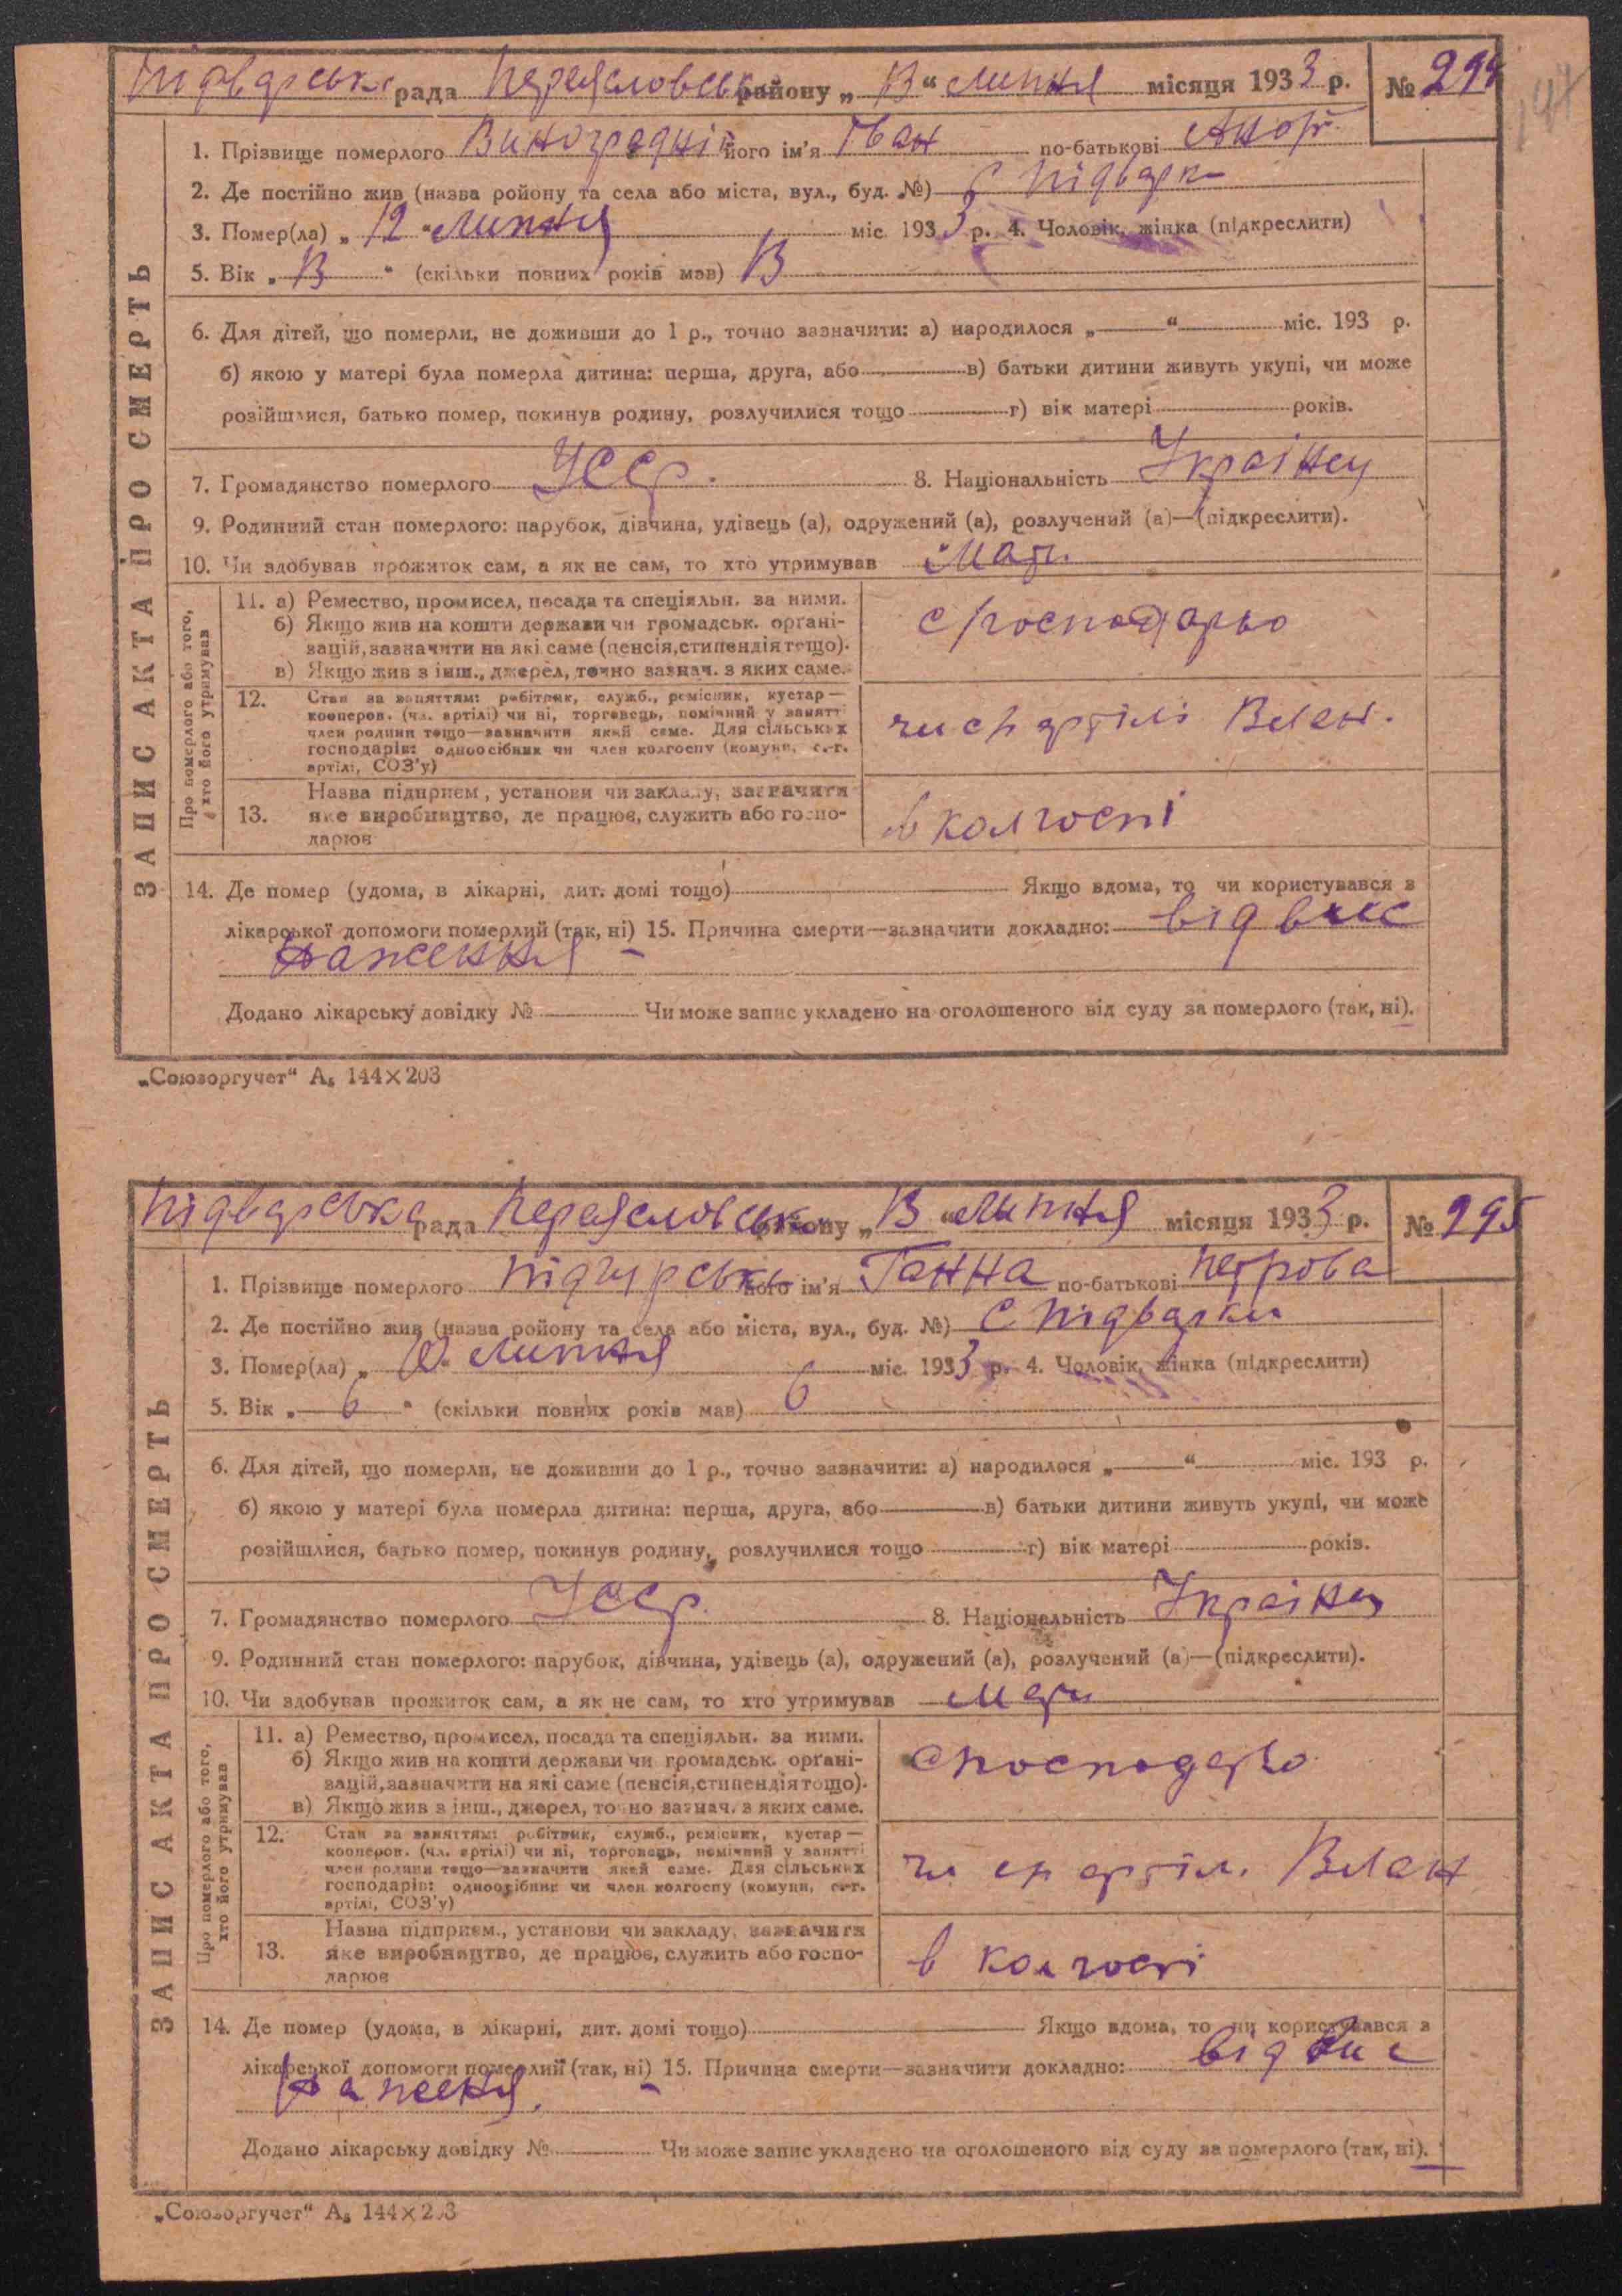 Підварська рада Переяславськ району „ 13 “ Липня місяця 1933 р. № 294
1. Прізвище померлого його ім'я Іван по-батькові
2. Де постійно жив (назва ройону та села або міста, вул., буд. №) с Підварки
3. Помер(ла) „ 12 “ Липня міс 1933 р. 4. Чоловік, жінка (підкреслити)
5. Вік „ 13 “ (скільки повних років мав) 13
ЗАПИС АКТА ПРО СМЕРТЬ
6. Для дітей, що померли, не доживши до 1 р., точно зазначити: а) народилося „ “ міс. 193 р.
б) якою у матері була померла дитина: перша, друга, або в) батьки дитини живуть укупі, чи може
розійшлися, батько помер, покинув родину, розлучилися тощо г) вік матері років.
7. Громадянство померлого УССР. 8. Національність Украінец
9. Родинний стан померлого: парубок, дівчина, удівець (а), одружений (а), розлучений (а)—(підкреслити).
10. Чи здобував прожиток сам, а як не сам, то хто утримував Мати
Про померлого або того, хто його утримував
11. а) Ремество, промисел, посада та спеціяльн. за ними.
б) Якщо жив на кошти держави чи громадськ. орґані-
зацій, зазначити на які саме (пенсія, стипендія тощо).
в) Якщо жив з інш., джерел, точно зазнач. з яких саме.
с/господарво
12. Стан за заняттям: робітник, служб., ремісник, кустар—
кооперов. (чл. артілі) чи ні, торговець, помічний у занятті
член родини тощо—зазначити який саме. Для сільських
господарів: одноосібник чи член колгоспу (комуни, с.-г.
артілі, СОЗ'у)
артілі
13. Назва підприєм., установи чи закладу, зазначити
яке виробництво, де працює, служить або госпо-
дарює
в колгоспі
14. Де помер (удома, в лікарні, дит. домі тощо) Якщо вдома, то чи користувався з
лікарської допомоги померлий (так, ні) 15. Причина смерти—зазначити докладно: від вис
наження
Додано лікарську довідку № Чи може запис укладено на оголошеного від суду за померлого (так, ні).
„Союзоргучет“ А₅ 144×203
Підварська рада Переяславськ району „ 13 “ Липня місяця 1933 р. № 295
1. Прізвище померлого Підгурська його ім'я Ганна по-батькові Петрова
2. Де постійно жив (назва ройону та села або міста, вул., буд. №) с Підварки
3. Помер(ла) „ “ Липня міс. 1933 р. 4. Чоловік, жінка (підкреслити)
5. Вік „ 6 “ (скільки повних років мав) 6
ЗАПИС АКТА ПРО СМЕРТЬ
6. Для дітей, що померли, не доживши до 1 р., точно зазначити: а) народилося „ “ міс. 193 р.
б) якою у матері була померла дитина: перша, друга, або в) батьки дитини живуть укупі, чи може
розійшлися, батько помер, покинув родину, розлучилися тощо г) вік матері років.
7. Громадянство померлого УССР. 8. Національність Украінец
9. Родинний стан померлого: парубок, дівчина, удівець (а), одружений (а), розлучений (а)—(підкреслити).
10. Чи здобував прожиток сам, а як не сам, то хто утримував мати
Про померлого або того, хто його утримував
11. а) Ремество, промисел, посада та спеціяльн. за ними.
б) Якщо жив на кошти держави чи громадськ. орґані-
зацій, зазначити на які саме (пенсія, стипендія тощо).
в) Якщо жив з інш., джерел, точно зазнач. з яких саме.
12. Стан за заняттям: робітник, служб., ремісник, кустар—
кооперов. (чл. артілі) чи ні, торговець, помічний у занятті
член родини тощо—зазначити який саме. Для сільських
господарів: одноосібник чи член колгоспу (комуни, с.-г.
артілі, СОЗ'у)
артіл.
13. Назва підприєм., установи чи закладу, зазначити
яке виробництво, де працює, служить або госпо-
дарює
в колгоспі
14. Де помер (удома, в лікарні, дит. домі тощо) Якщо вдома, то чи користувався з
лікарської допомоги померлий (так, ні) 15. Причина смерти—зазначити докладно: від вис
наження.
Додано лікарську довідку № Чи може запис укладено на оголошеного від суду за померлого (так, ні).
„Союзоргучет“ А₅ 144×203